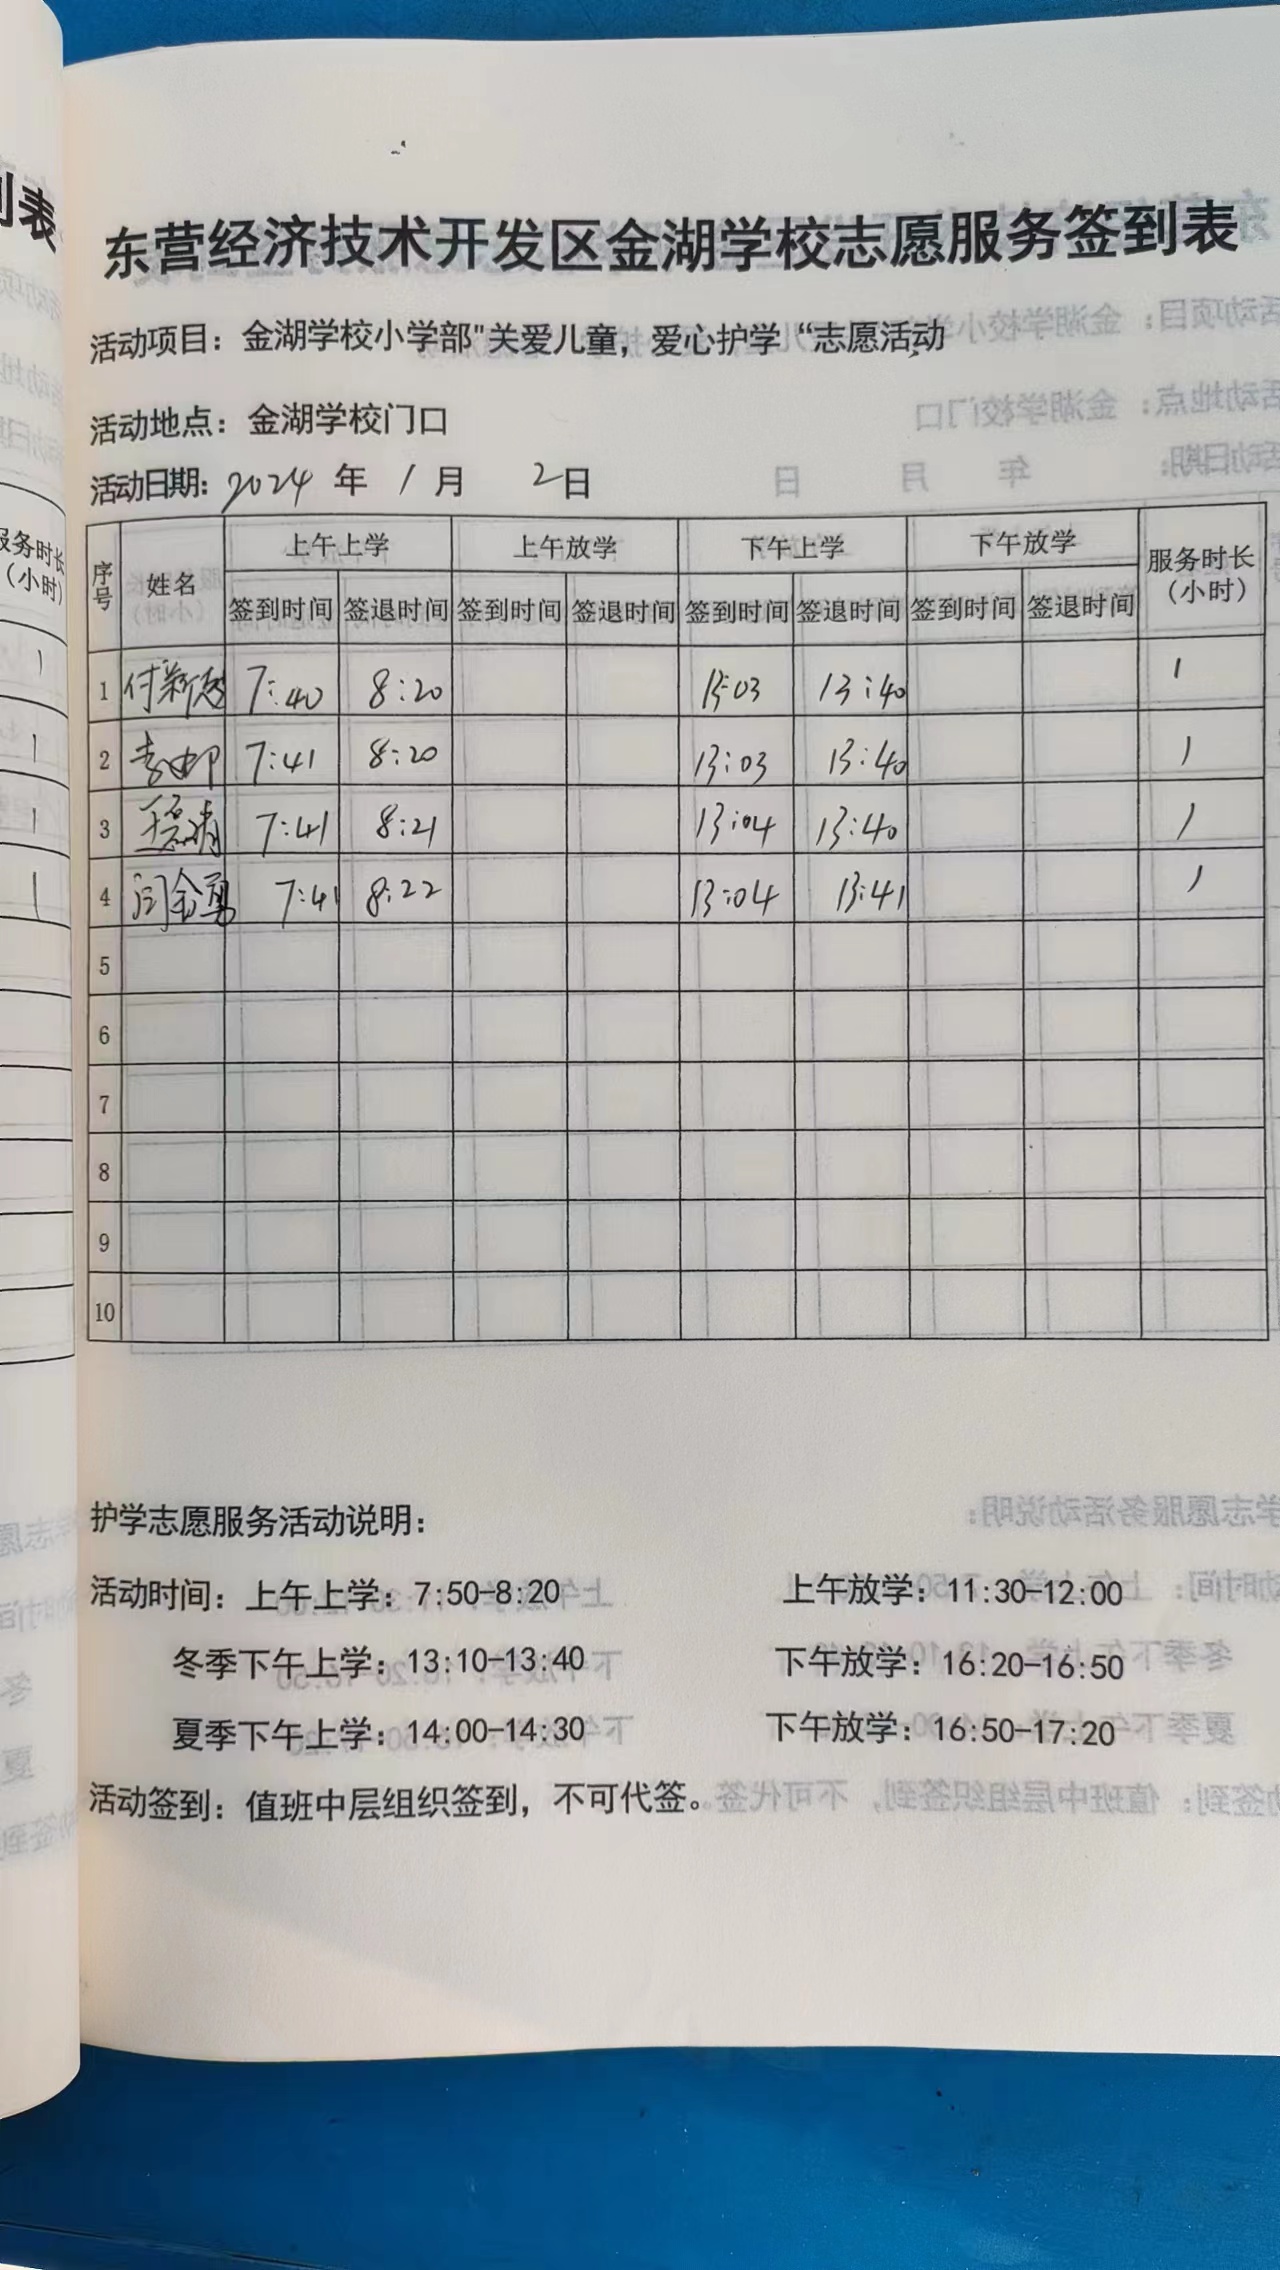 到表
服务时长
（小时）
1
1
1
1
东营经济技术开发区金湖学校志愿服务签到表
活动项目：金湖学校小学部"关爱儿童，爱心护学“志愿活动
活动地点：金湖学校门口
活动日期：2024 年 1 月 2日
序号 姓名 上午上学 上午放学 下午上学 下午放学 服务时长（小时）
签到时间 签退时间 签到时间 签退时间 签到时间 签退时间 签到时间 签退时间
1 7:40 8:20 13:03 13:40 1
2 7:41 8:20 13:03 13:40 1
3 7:41 8:21 13:04 13:40 1
4 7:41 8:22 13:04 13:41 1
5
6
7
8
9
10
护学志愿服务活动说明：
活动时间：上午上学：7:50-8:20 上午放学：11:30-12:00
冬季下午上学：13:10-13:40 下午放学：16:20-16:50
夏季下午上学：14:00-14:30 下午放学：16:50-17:20
活动签到：值班中层组织签到，不可代签。